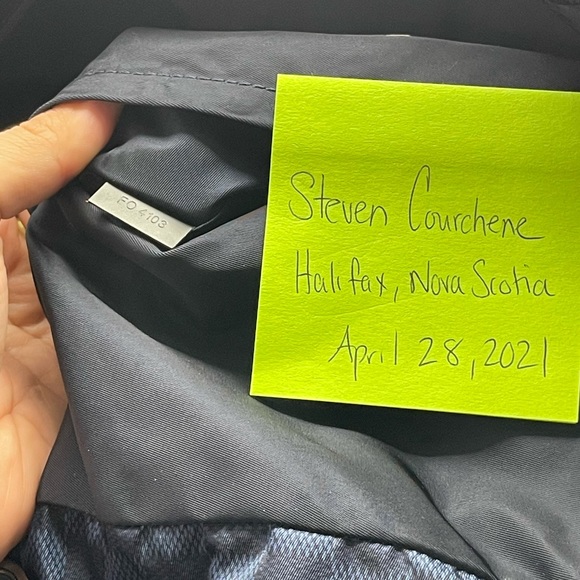 FO 4103
Steven Courchene
Halifax, Nova Scotia
April 28, 2021